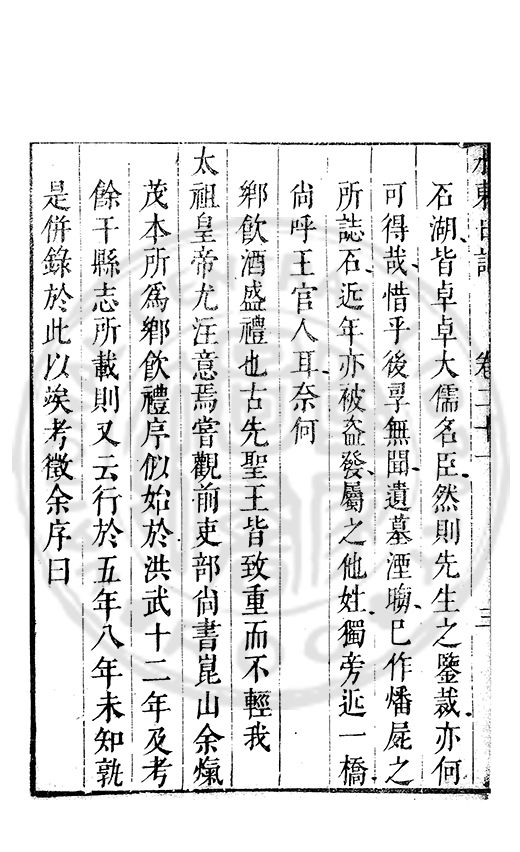 水東日記 卷二十一 三
石湖皆卓卓大儒名臣然則先生之鑒裁亦何
可得哉惜乎後孠無聞遺墓湮䏚巳作燔屍之
所誌石近年亦被盗發屬之他姓獨旁近一橋
尚呼王官人耳奈何
鄉飲酒盛禮也古先聖王皆致重而不輕我
太祖皇帝尤注意焉嘗觀前吏部尚書崑山余熂
茂本所爲鄉飲禮序似始於洪武十二年及考
餘干縣志所載則又云行於五年八年未知孰
是併錄於此以竢考徵余序曰